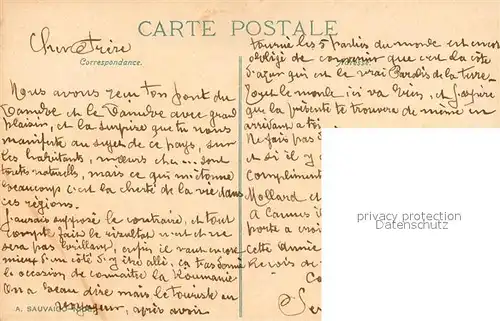 CARTE POSTALE
Correspondance.
Adresse.
Cher Frère
Nous avons reçu ton pont du
Danube et le Danube avec grand
plaisir, et la surprise que tu nous
manifeste au sujet de ce pays, sur
les habitants, mœurs etc... sont
toutes naturelles, mais ce qui m'étonne
beaucoup c'est la cherté de la vie dans
ces régions.
J'aurais supposé le contraire, et tout
compte fait le résultat n'est ne
sera pas brillant, enfin il vaut encore
mieux d'un côté d'y être allé, ça t'as donné
le occasion de connaître la Roumanie
On a beau dire mais le touriste ou
voyageur, après avoir
A. SAUVAIGO
tourné les 5 parties du monde est encore
obligé de que c'est la côte
d'azur qui est le vrai Paradis de la terre
Tout le monde ici va bien, et j'espère
que la présente te trouvera de même en
arrivant a
Ne fais pas
et si il y
Compliment
Mollard et
A Cannes il
porte a
cette Année
Revois de
privacy protection
Datenschutz